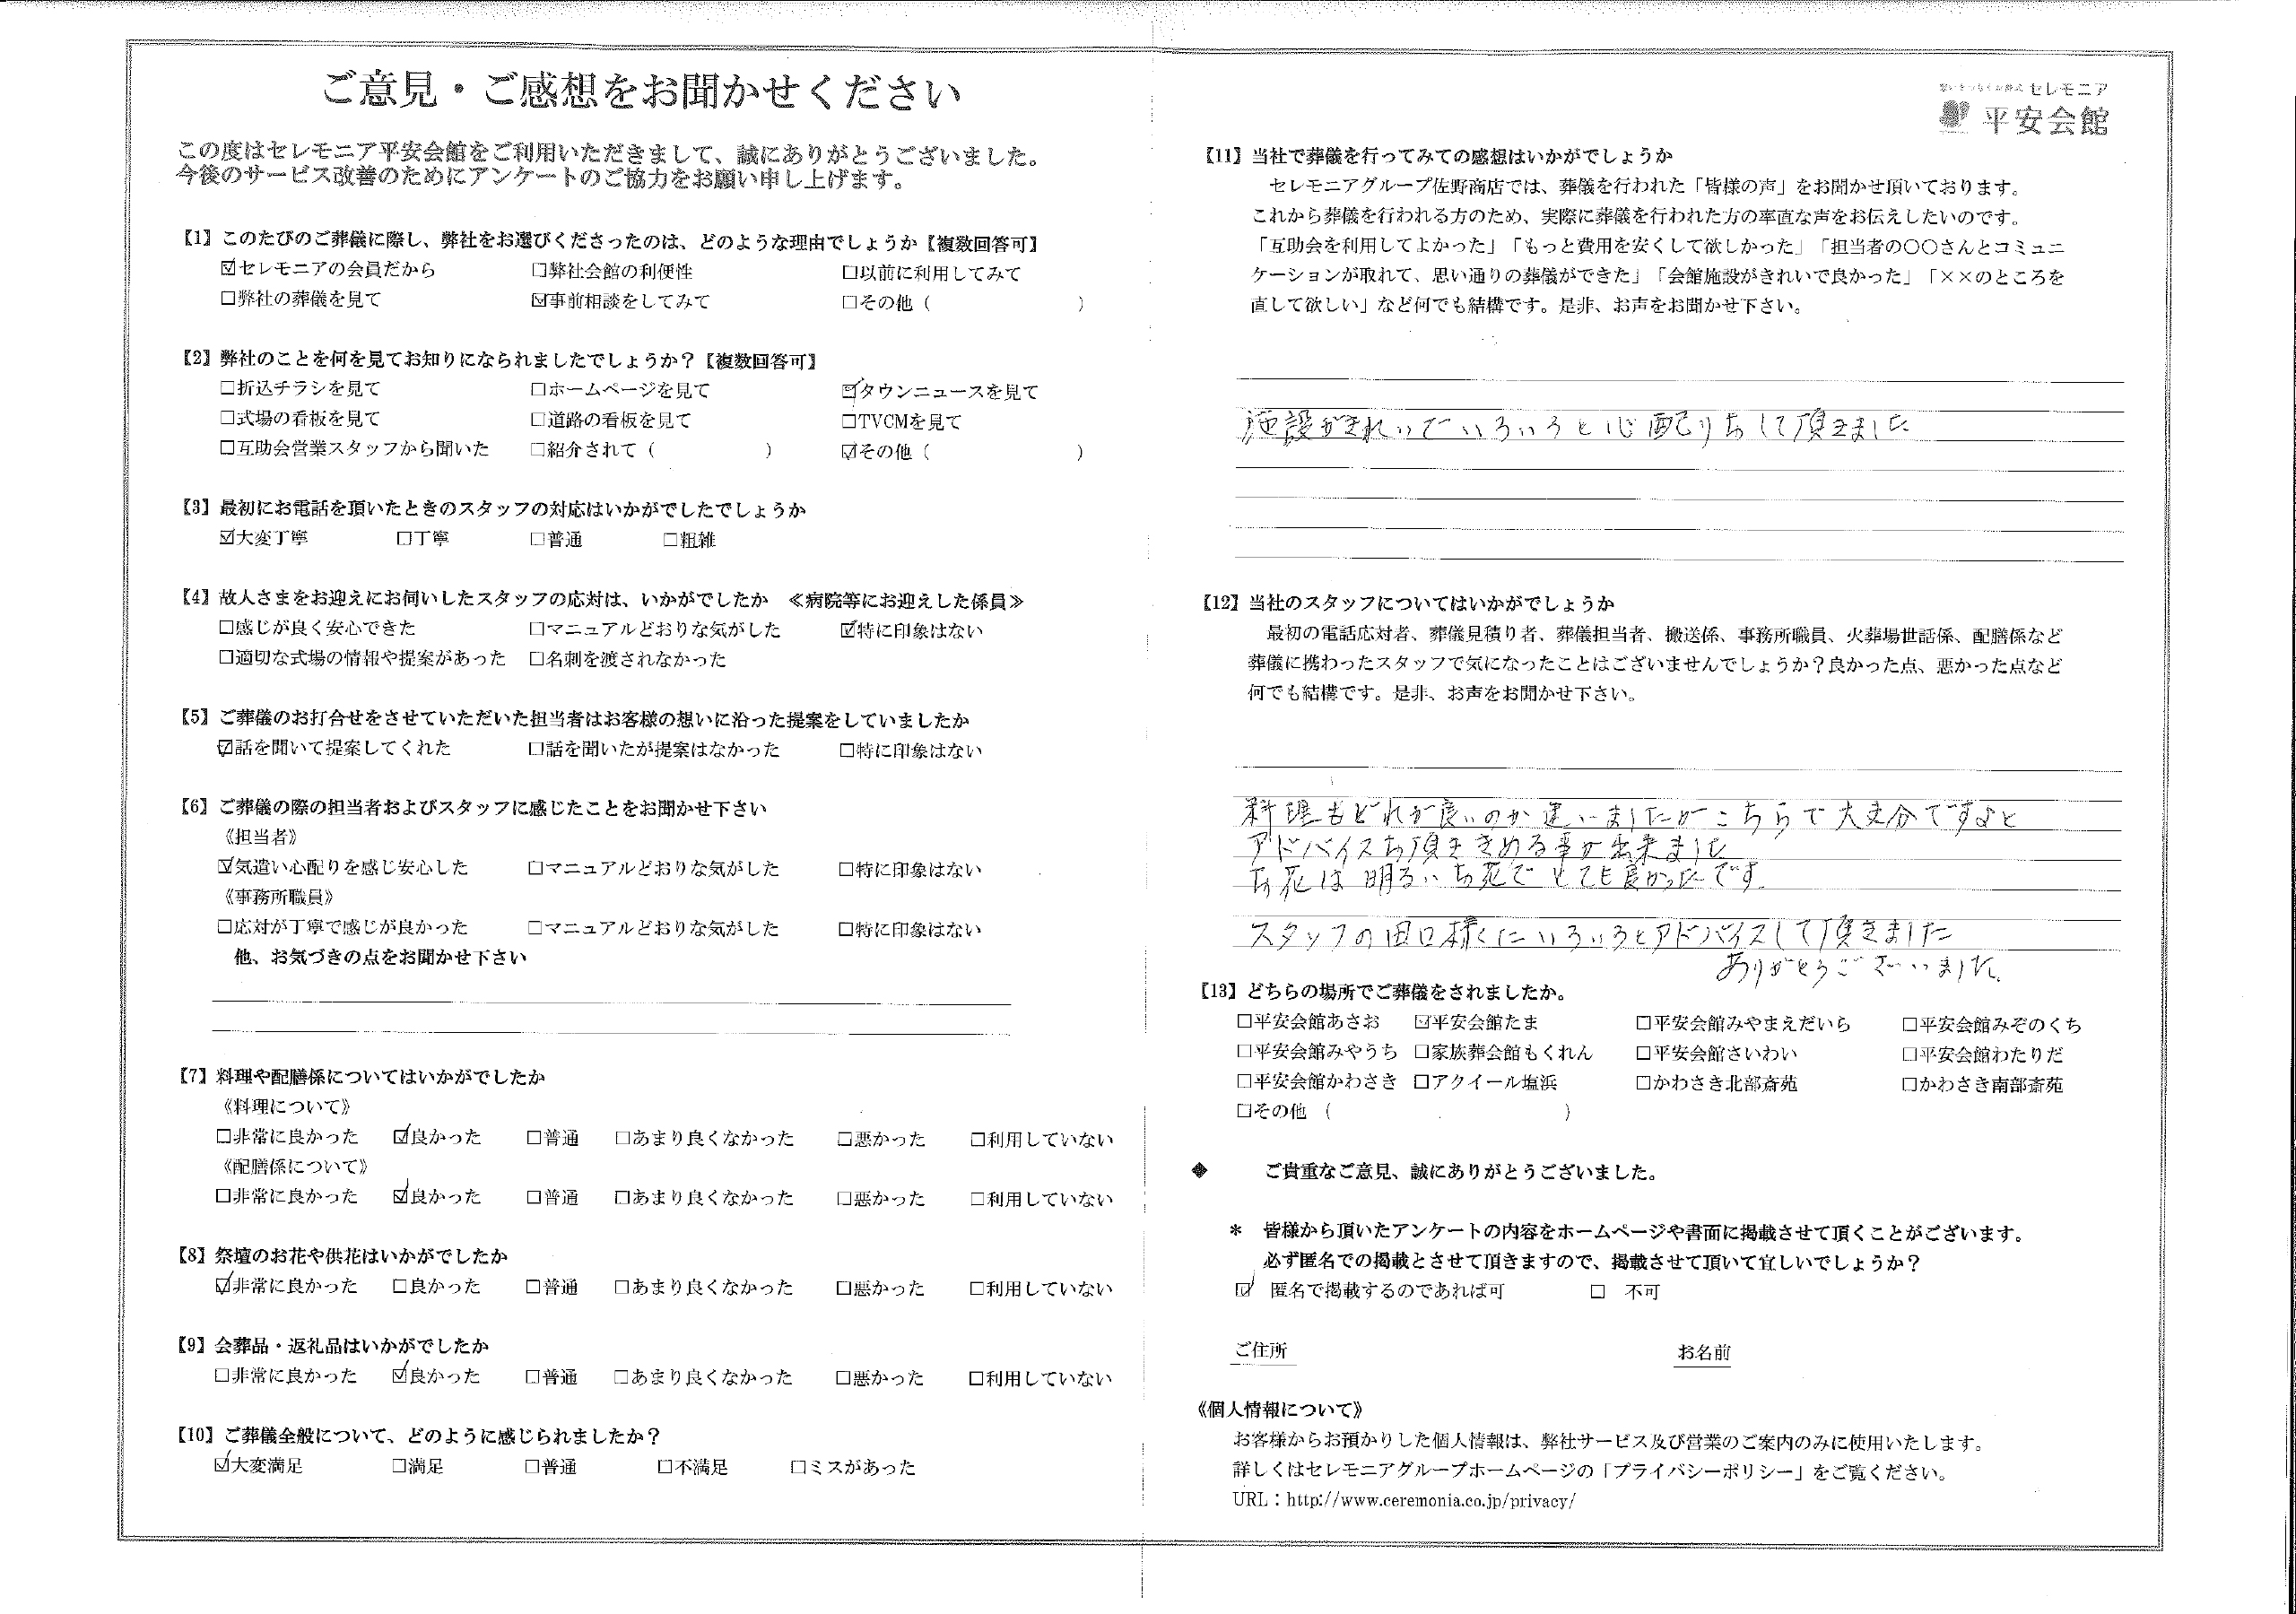 ご意見・ご感想をお聞かせください
この度はセレモニア平安会館をご利用いただきまして、誠にありがとうございました。
今後のサービス改善のためにアンケートのご協力をお願い申し上げます。
【1】このたびのご葬儀に際し、弊社をお選びくださったのは、どのような理由でしょうか【複数回答可】
☑セレモニアの会員だから □弊社会館の利便性 □以前に利用してみて
□弊社の葬儀を見て ☑事前相談をしてみて □その他（ ）
【2】弊社のことを何を見てお知りになられましたでしょうか？【複数回答可】
□折込チラシを見て □ホームページを見て ☑タウンニュースを見て
□式場の看板を見て □道路の看板を見て □TVCMを見て
□互助会営業スタッフから聞いた □紹介されて（ ） ☑その他（ ）
【3】最初にお電話を頂いたときのスタッフの対応はいかがでしたでしょうか
☑大変丁寧 □丁寧 □普通 □粗雑
【4】故人さまをお迎えにお伺いしたスタッフの応対は、いかがでしたか ≪病院等にお迎えした係員≫
□感じが良く安心できた □マニュアルどおりな気がした ☑特に印象はない
□適切な式場の情報や提案があった □名刺を渡されなかった
【5】ご葬儀のお打合せをさせていただいた担当者はお客様の想いに沿った提案をしていましたか
☑話を聞いて提案してくれた □話を聞いたが提案はなかった □特に印象はない
【6】ご葬儀の際の担当者およびスタッフに感じたことをお聞かせ下さい
《担当者》
☑気遣い心配りを感じ安心した □マニュアルどおりな気がした □特に印象はない
《事務所職員》
□応対が丁寧で感じが良かった □マニュアルどおりな気がした □特に印象はない
他、お気づきの点をお聞かせ下さい
【7】料理や配膳係についてはいかがでしたか
《料理について》
□非常に良かった ☑良かった □普通 □あまり良くなかった □悪かった □利用していない
《配膳係について》
□非常に良かった ☑良かった □普通 □あまり良くなかった □悪かった □利用していない
【8】祭壇のお花や供花はいかがでしたか
☑非常に良かった □良かった □普通 □あまり良くなかった □悪かった □利用していない
【9】会葬品・返礼品はいかがでしたか
□非常に良かった ☑良かった □普通 □あまり良くなかった □悪かった □利用していない
【10】ご葬儀全般について、どのように感じられましたか？
☑大変満足 □満足 □普通 □不満足 □ミスがあった
セレモニア
平安会館
【11】当社で葬儀を行ってみての感想はいかがでしょうか
セレモニアグループ佐野商店では、葬儀を行われた「皆様の声」をお聞かせ頂いております。
これから葬儀を行われる方のため、実際に葬儀を行われた方の率直な声をお伝えしたいのです。
「互助会を利用してよかった」「もっと費用を安くして欲しかった」「担当者の〇〇さんとコミュニ
ケーションが取れて、思い通りの葬儀ができた」「会館施設がきれいで良かった」「××のところを
直して欲しい」など何でも結構です。是非、お声をお聞かせ下さい。
施設がきれいでいろいろと心配りもして頂きました
【12】当社のスタッフについてはいかがでしょうか
最初の電話応対者、葬儀見積り者、葬儀担当者、搬送係、事務所職員、火葬場世話係、配膳係など
葬儀に携わったスタッフで気になったことはございませんでしょうか？良かった点、悪かった点など
何でも結構です。是非、お声をお聞かせ下さい。
料理もどれが良いのか迷いましたがこちらで大丈分ですよと
アドバイスも頂ききめる事が出来ました
お花は明るいお花でとても良かったです
スタッフの田口様にいろいろとアドバイスして頂きました
ありがとうございました。
【13】どちらの場所でご葬儀をされましたか。
□平安会館あさお ☑平安会館たま □平安会館みやまえだいら □平安会館みぞのくち
□平安会館みやうち □家族葬会館もくれん □平安会館さいわい □平安会館わたりだ
□平安会館かわさき □アクイール塩浜 □かわさき北部斎苑 □かわさき南部斎苑
□その他（ ）
◆ ご貴重なご意見、誠にありがとうございました。
＊ 皆様から頂いたアンケートの内容をホームページや書面に掲載させて頂くことがございます。
必ず匿名での掲載とさせて頂きますので、掲載させて頂いて宜しいでしょうか？
☑ 匿名で掲載するのであれば可 □ 不可
ご住所 お名前
《個人情報について》
お客様からお預かりした個人情報は、弊社サービス及び営業のご案内のみに使用いたします。
詳しくはセレモニアグループホームページの「プライバシーポリシー」をご覧ください。
URL：http://www.ceremonia.co.jp/privacy/